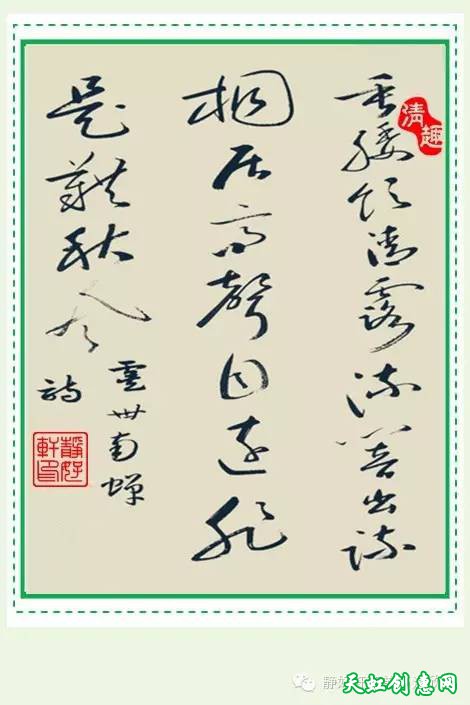 清趣
垂緌飲清露流響出疏
桐居高聲自遠非
是藉秋風
虞世南蟬
詩
靜好
軒印
静
天虹创意网